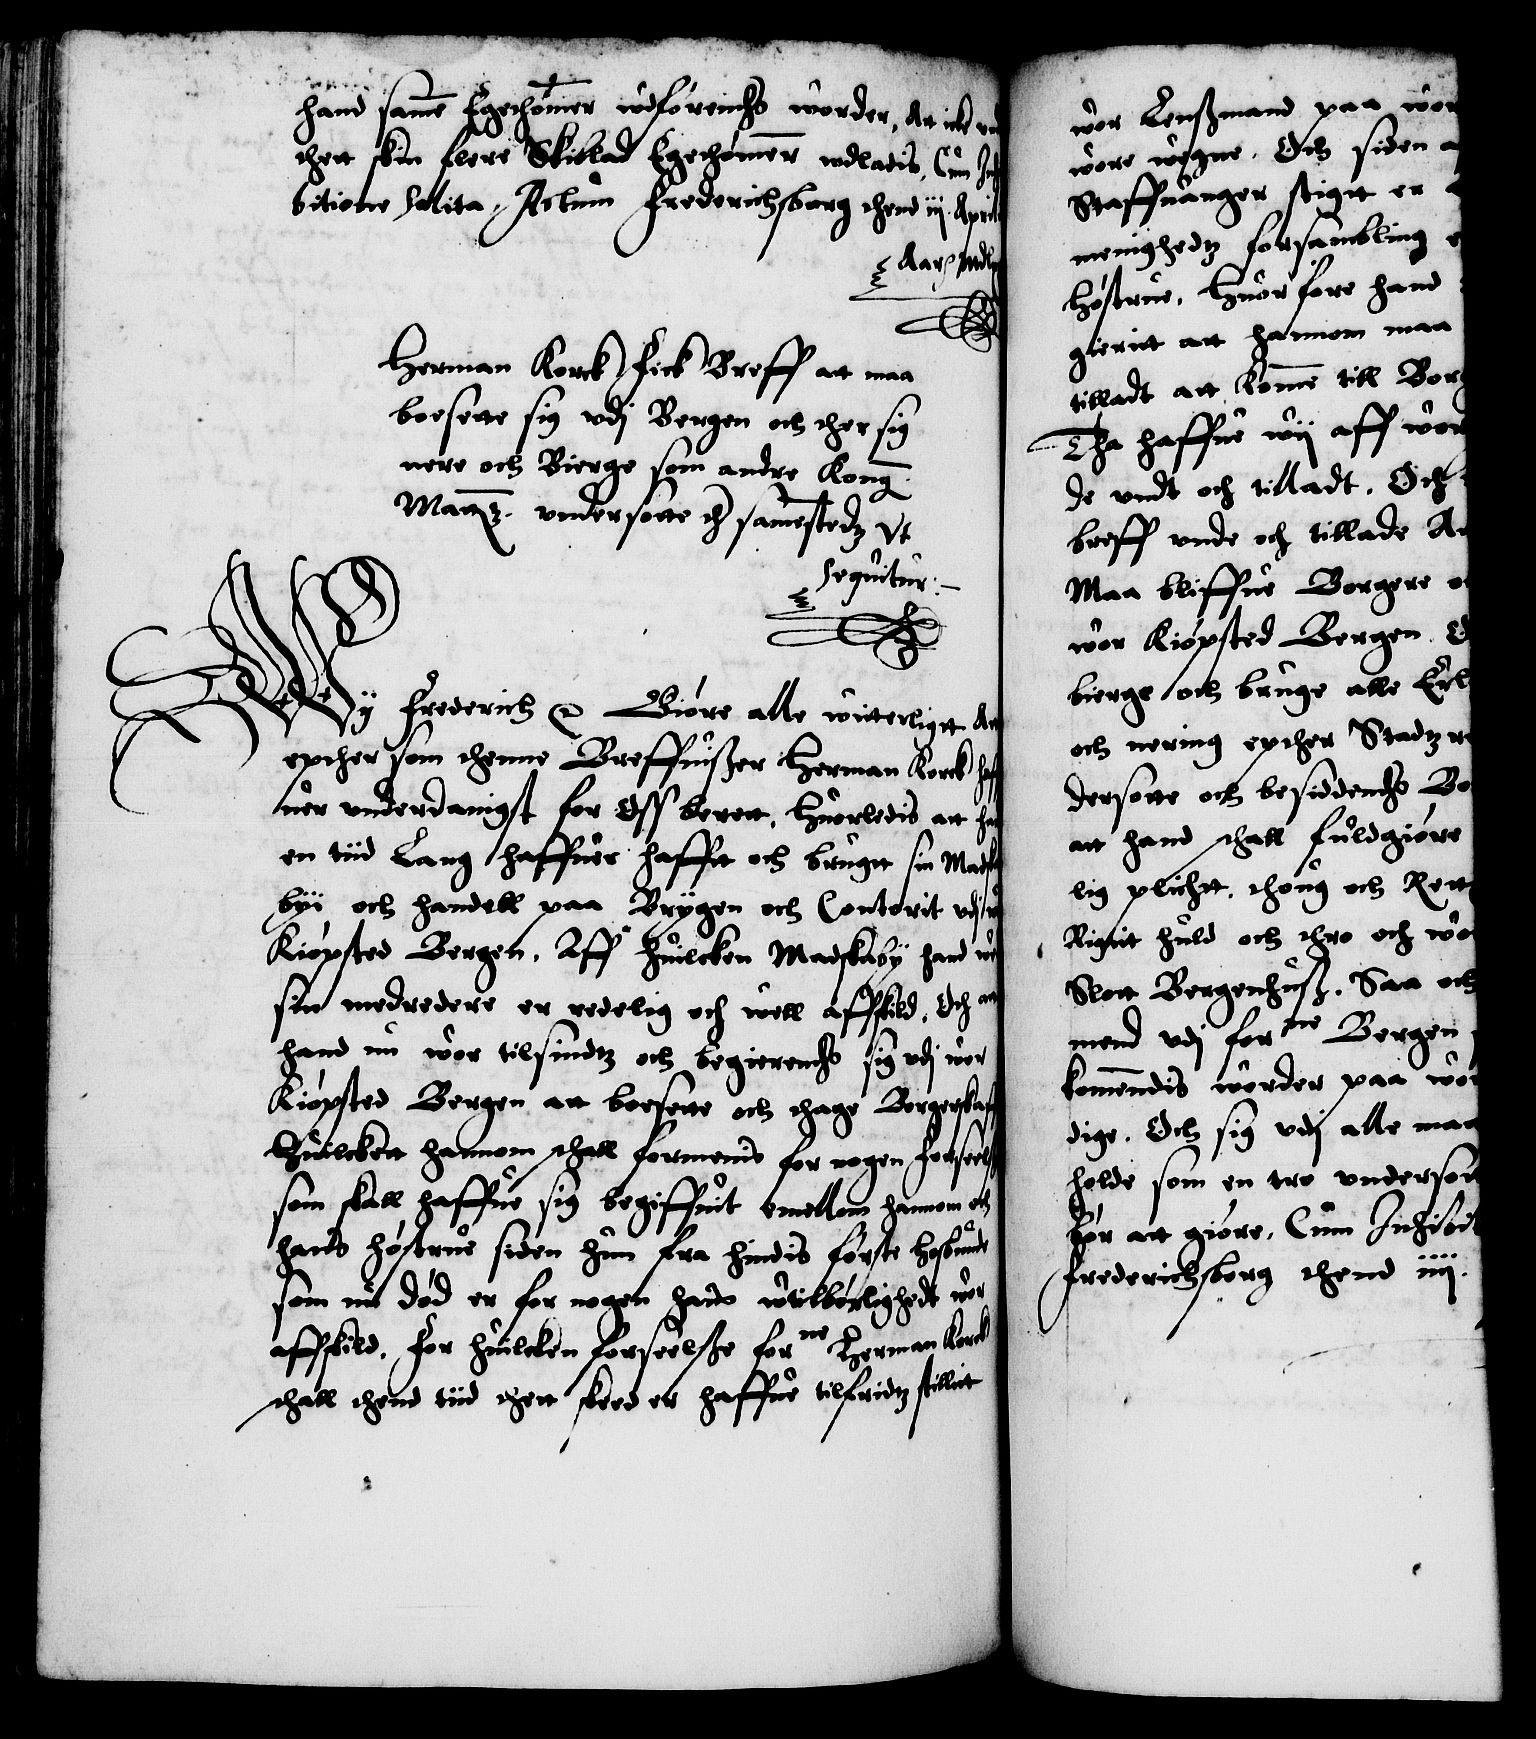 hand same Egetømer wdførendis worder, At icke
thett skin flere Skiblad Egetømer wdladis, Cum Inhi
bitione solita, Actum Frederichsborg thend iij. April
Aar &c Mdlx
Herman Korck Fick Breff att maa
boesette sig vdj Bergen och ther sig
nere och Bierge som andre Kong
Maattz. vndersotte ther samestedz Vt
sequitur:-
Wy Frederich &c Giøre alle witterligtt At
epther som thenne Breffuißer Herman Korck haff
uer vnderdanigst for Oss berett, huorledis att hand
en tiid Lang haffuer hafft och brugtt sin Madsko
byi och handell paa Brygen och Contorit vdj wor
Kiøpsted Bergen, Aff huilcken Madskaby hand
sin medredere er redelig och well affskild, Och att
hand nu wor tilsindtz och begierendis sig vdj wor
Kiøpsted Bergen att boesette och thage Borgerskaff
Huilckett hannom schall formenis for nogen forseelse
som skall haffue sig begiffuit emellom hannom och
hans høstrue siden hun fra hindis første hosbunde
som nu død er for nogen hans wtilbørlighedt wor
affskild, For huilcken forseelße forne Herman Korck
schall thend tiid thett skeed er haffue tilfridtz stillit
wor Lenßmand paa wor
wore wegne, Och siden
Staffuanger stigtt er
menighedtz forsambling
høstrue, Huorfore hand
gierit att hannom maa
tilladt att komme till Borg
Tha haffue wij aff wor
de vndt och tilladt, Och
breff vnde och tillade At
Maa bliffue Borgere
wor Kiøpsted Bergen
bierge och bruge alle Erl
och nering epther Stadtz
dersotte och besiddendis Bo
att hand schall fuldgiøre
lig plichtt, thoug och Rett
Rigitt huld och thro och wor
Slott Bergenhuß, Saa och
mend vdj forne Bergen
komendis worder paa wor
dige, Och sig vdj alle maa
holde som en tro vndersott
bør att giøre, Cum Inhibit
Frederichsborg thend iiij.